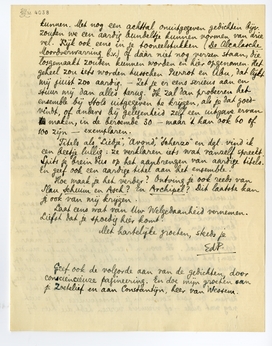 kunnen. Met nog een achttal onuitgegeven gedichten bij-
zouden we een aardig bundeltje hunnen vormen, van drie
vel. Kijk ook eens in je tooneelstukken (de Akaleische
Boordervaring bv.) of daar niet nog verzen staan, die
losgemaakt zouden kunnen worden en hier opgenomen. Het
geheel zou iets worden tusschen Pierrot en Ubu, dat lijkt
mij juist zoo aardig. — Zet je er eens serieus aan en
stuur mij dan alles terug. Ik zal dan probeeren het
ensemble bij Stols uitgegeven te krijgen, als je dat goed-
vindt, of anders bij gelegenheid zelf een uitgave ervan
maken, in de beroemde 30 — maar 't kan ook 60 of
100 zijn — exemplaren.
Titels als "Liedje", "Avond", "Scherzo" en dgl. vind ik
een beetje lullig. Ze verklaren iets wat vanzelf spreekt.
Spits je brein dus op het aanbrengen van aardige titels.
En geef ook een aardige titel aan het ensemble.
Hoe maak je het verder? Ontving je ook reeds van
Stan Schuim en Asch? En Archipel? Dit laatste kan
je ook van mij krijgen.
Laat eens wat van Uw Welgedaanheid vernemen.
Liefst dat je spoedig hier komt!
Met hartelijke groeten, steeds je
EdP.
Geef ook de volgorde aan van de gedichten, door
consciencieuze pagineering. En doe mijn groeten aan
je Zoetelief en aan Constantijn, heer van Wessem.